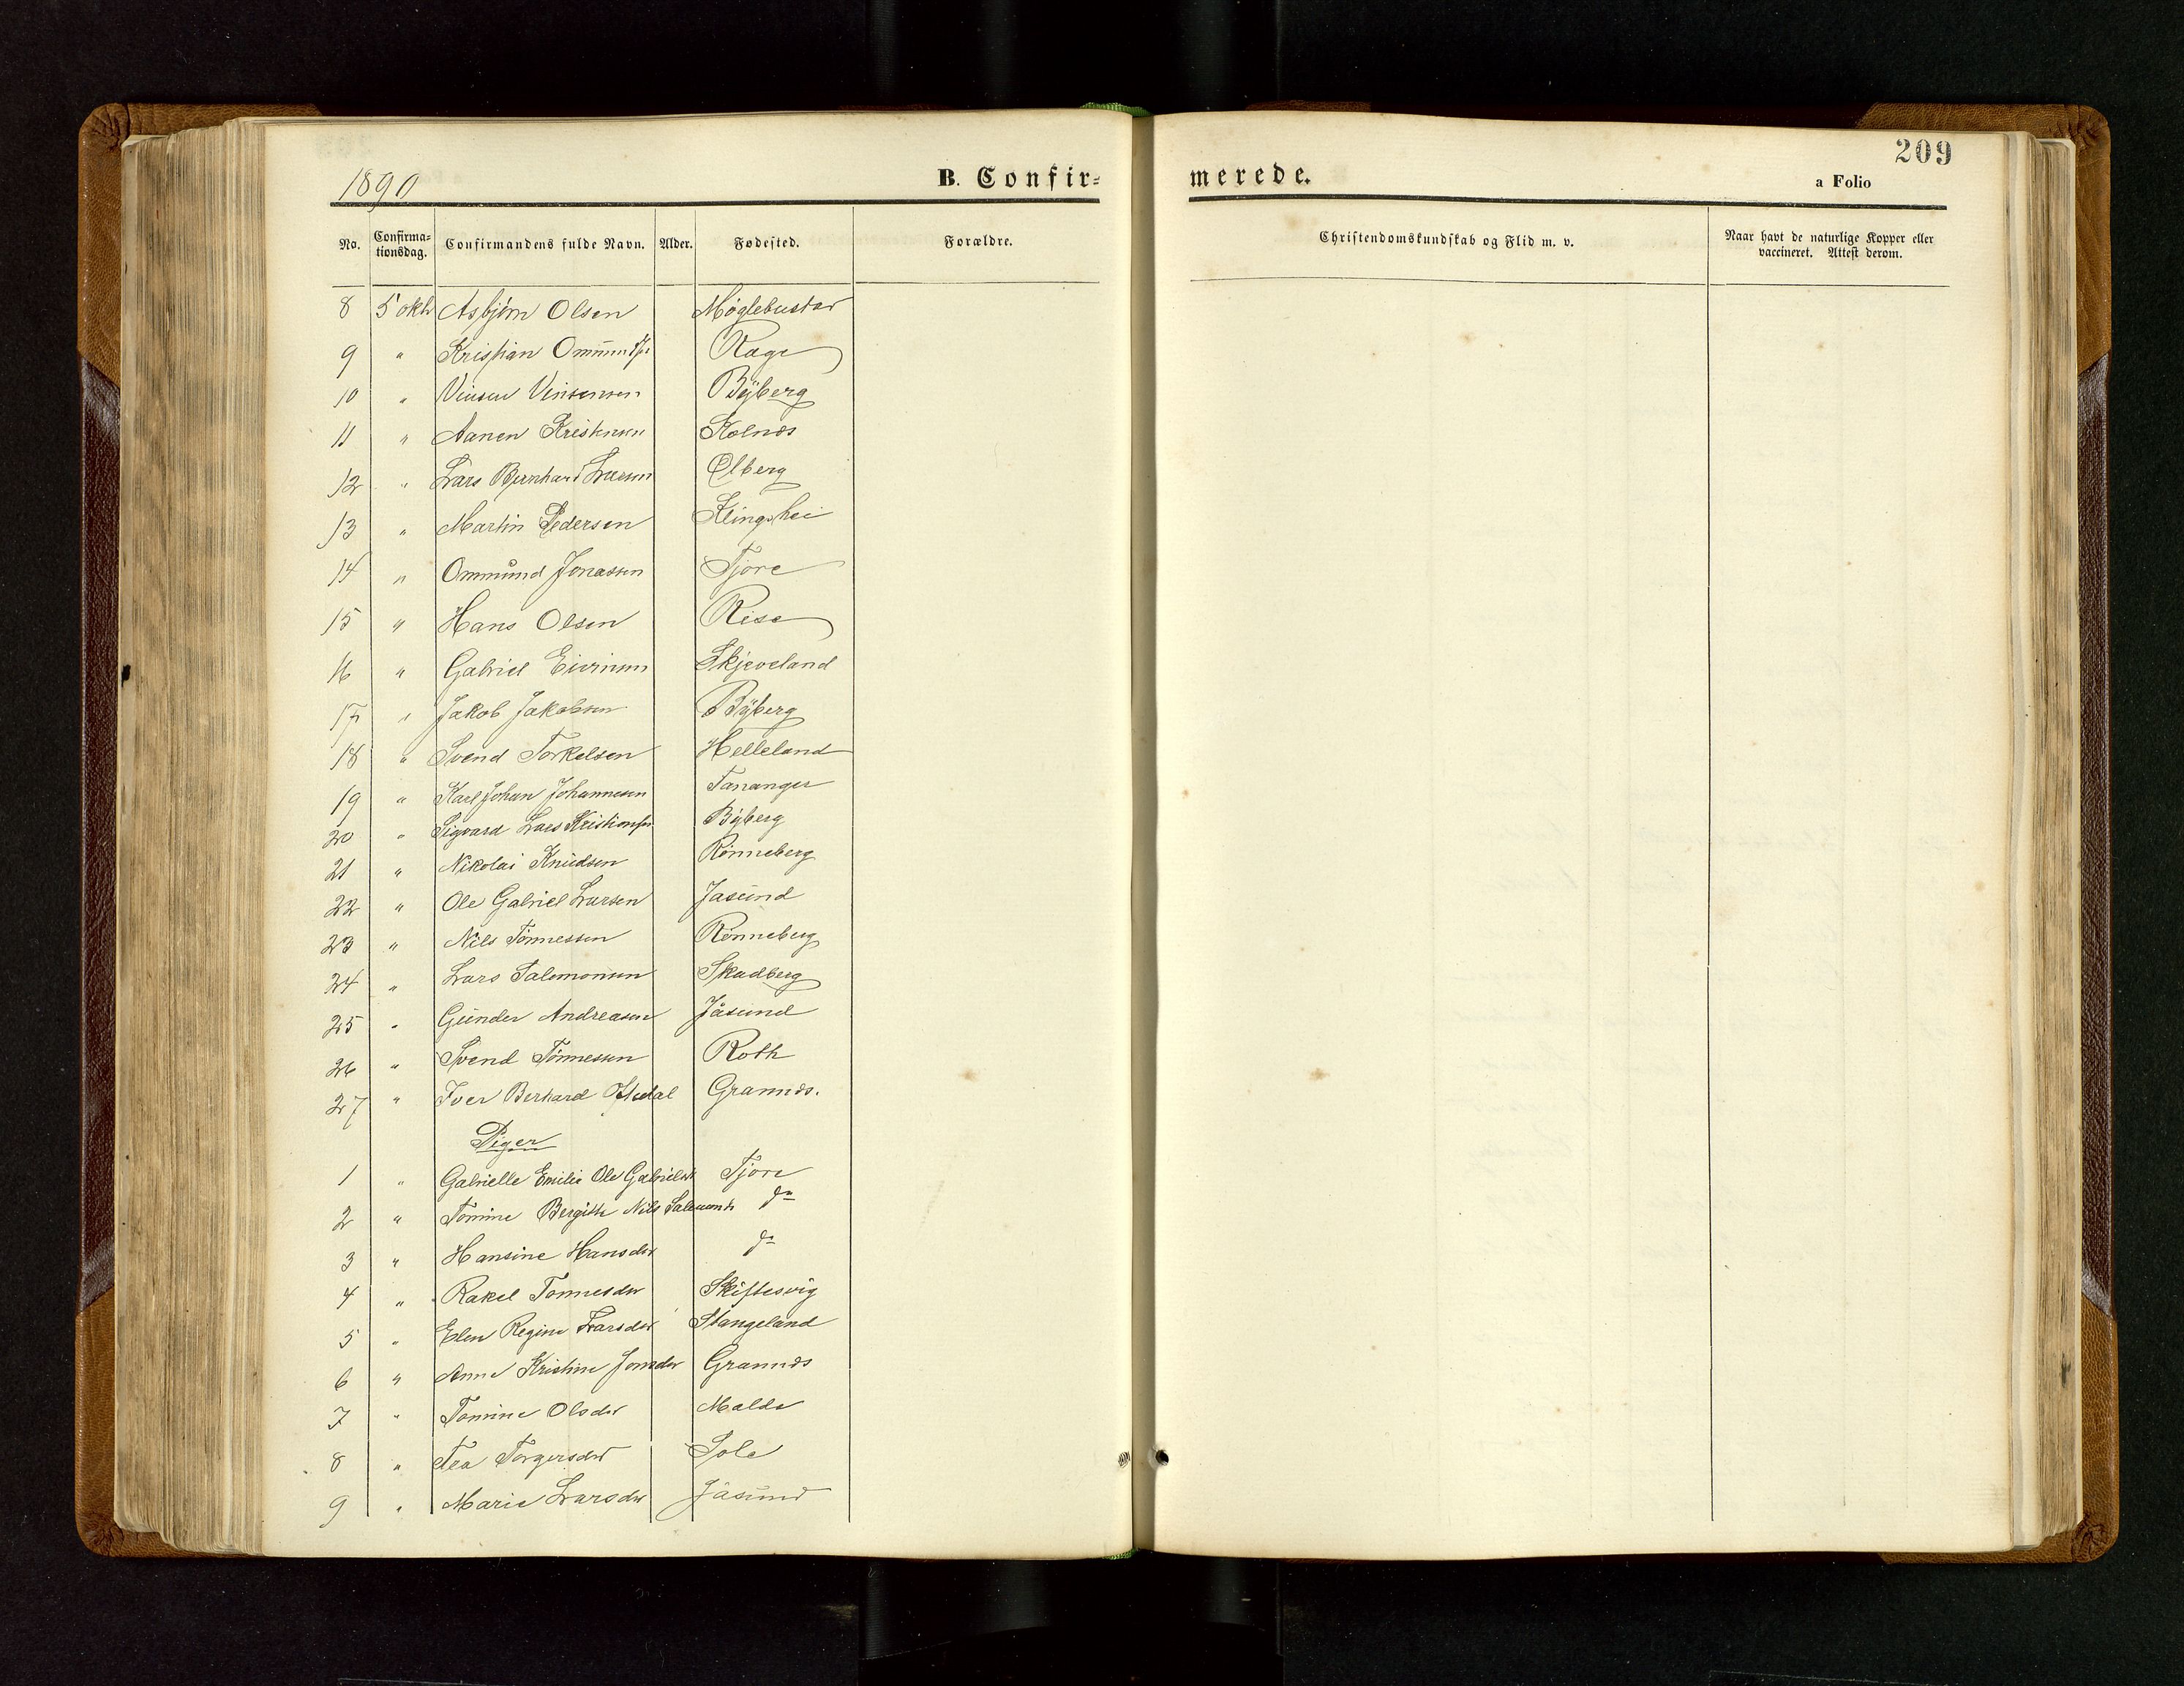 209
1890 B. Confir= merede. a Folio
No. Confirma=tionsdag. Confirmandens fulde Navn. Alder. Fødested. Forældre. Christendomskundskab og Flid m. v. Naar havt de naturlige Kopper eller vaccineret. Attest derom.
8 5 oktr Asbjørn Olsen Møglebustar
9 " Kristian Rage
10 " Vinsensen Byberg
11 " Aanen Kolnæs
12 " Lars Bernhard Larsen Ølberg
13 " Martin Pedersen Klingshei
14 " Ommund Jonassen Tjore
15 " Hans Olsen Rise
16 " Gabriel Skjæveland
17 " Jakob Jakobsen Byberg
18 " Svend Torkelsen Helleland
19 " Karl Johan Johannesen Tananger
20 " Sigvard Lars Byberg
21 " Nikolai Knudsen Rønneberg
22 " Ole Gabriel Larsen Jasund
23 " Nils Tønnessen Rønneberg
24 " Lars Salomonsen Skadberg
25 " Gunder Andreasen Jåsund
26 " Svend Tønnessen Roth
27 " Iver Berhard Grannæs.
Piger
1 " Gabrielle Emilie Ole Gabrielsdr Tjore
2 " Tomine Bergitte Nils do
3 " Hansine Hansdtr do
4 " Rakel Tønnesdtr Skiftesvig
5 " Elen Regine Larsdtr Stangeland
6 " Anne Kristine Jonasdtr Grannæs
7 " Tomine Olsdtr Malde
8 " Tea Torgersdtr Sole
9 " Marie Larsdtr Jåsund